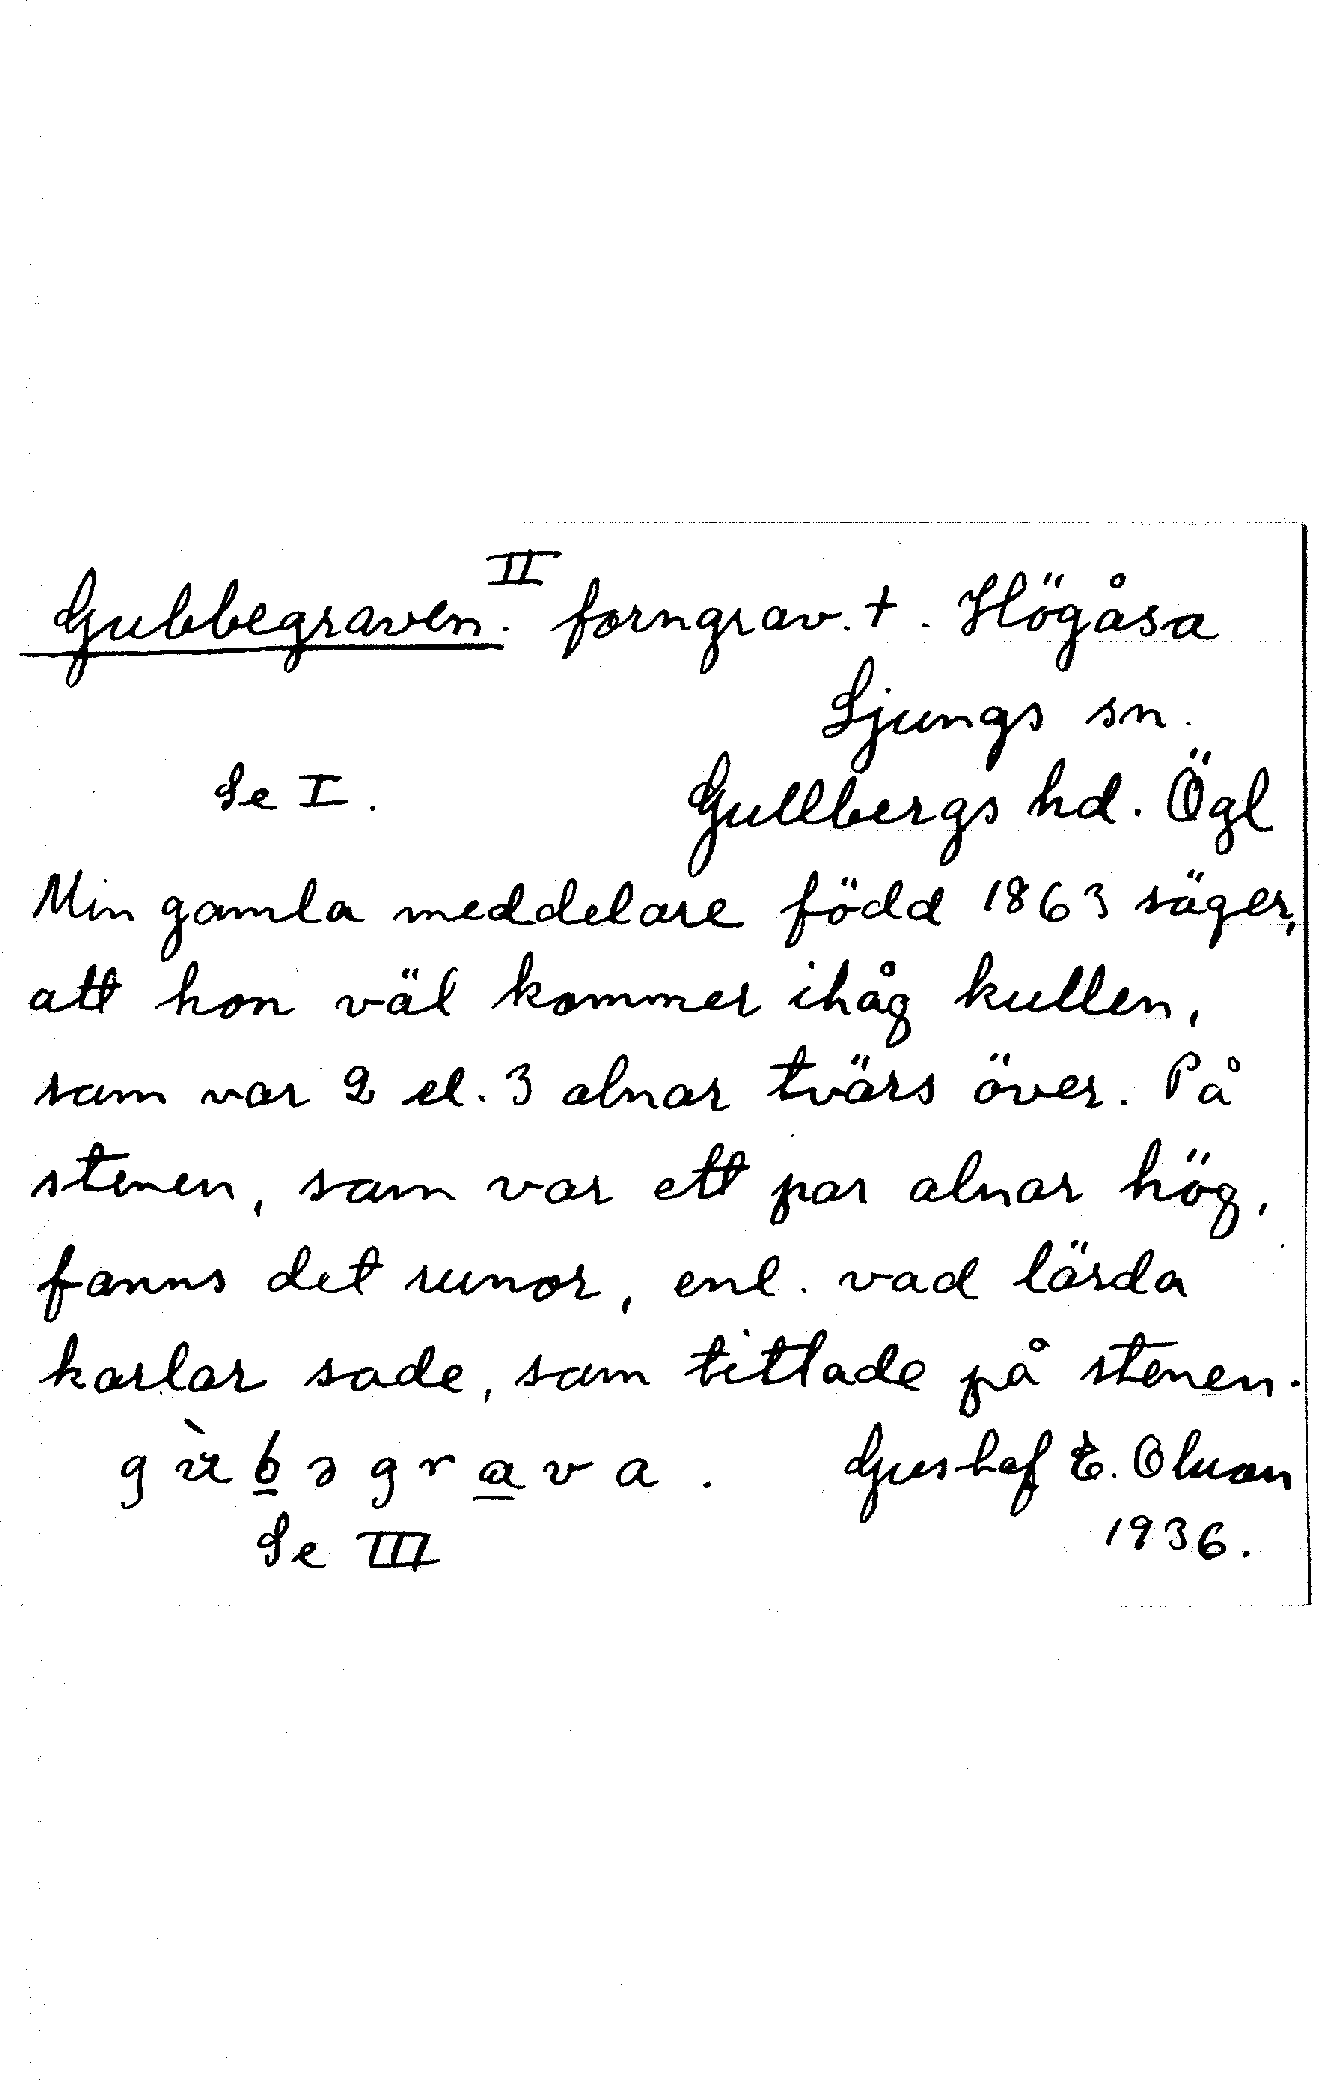 Gubbegraven. II forngrav. + . Högåsa
Ljungs sn.
Se I. Gullbergs hd. Ögl
Min gamla meddelare född 1863 säger,
att hon väl kommer ihåg kullen,
som var 2 el. 3 alnar tvärs över. På
stenen, som var ett par alnar hög,
fanns det runor, enl. vad lärda
karlar sade, som tittade på stenen.
gùb̲əgra̲va. Gushaf E. Olson
Se III 1936.